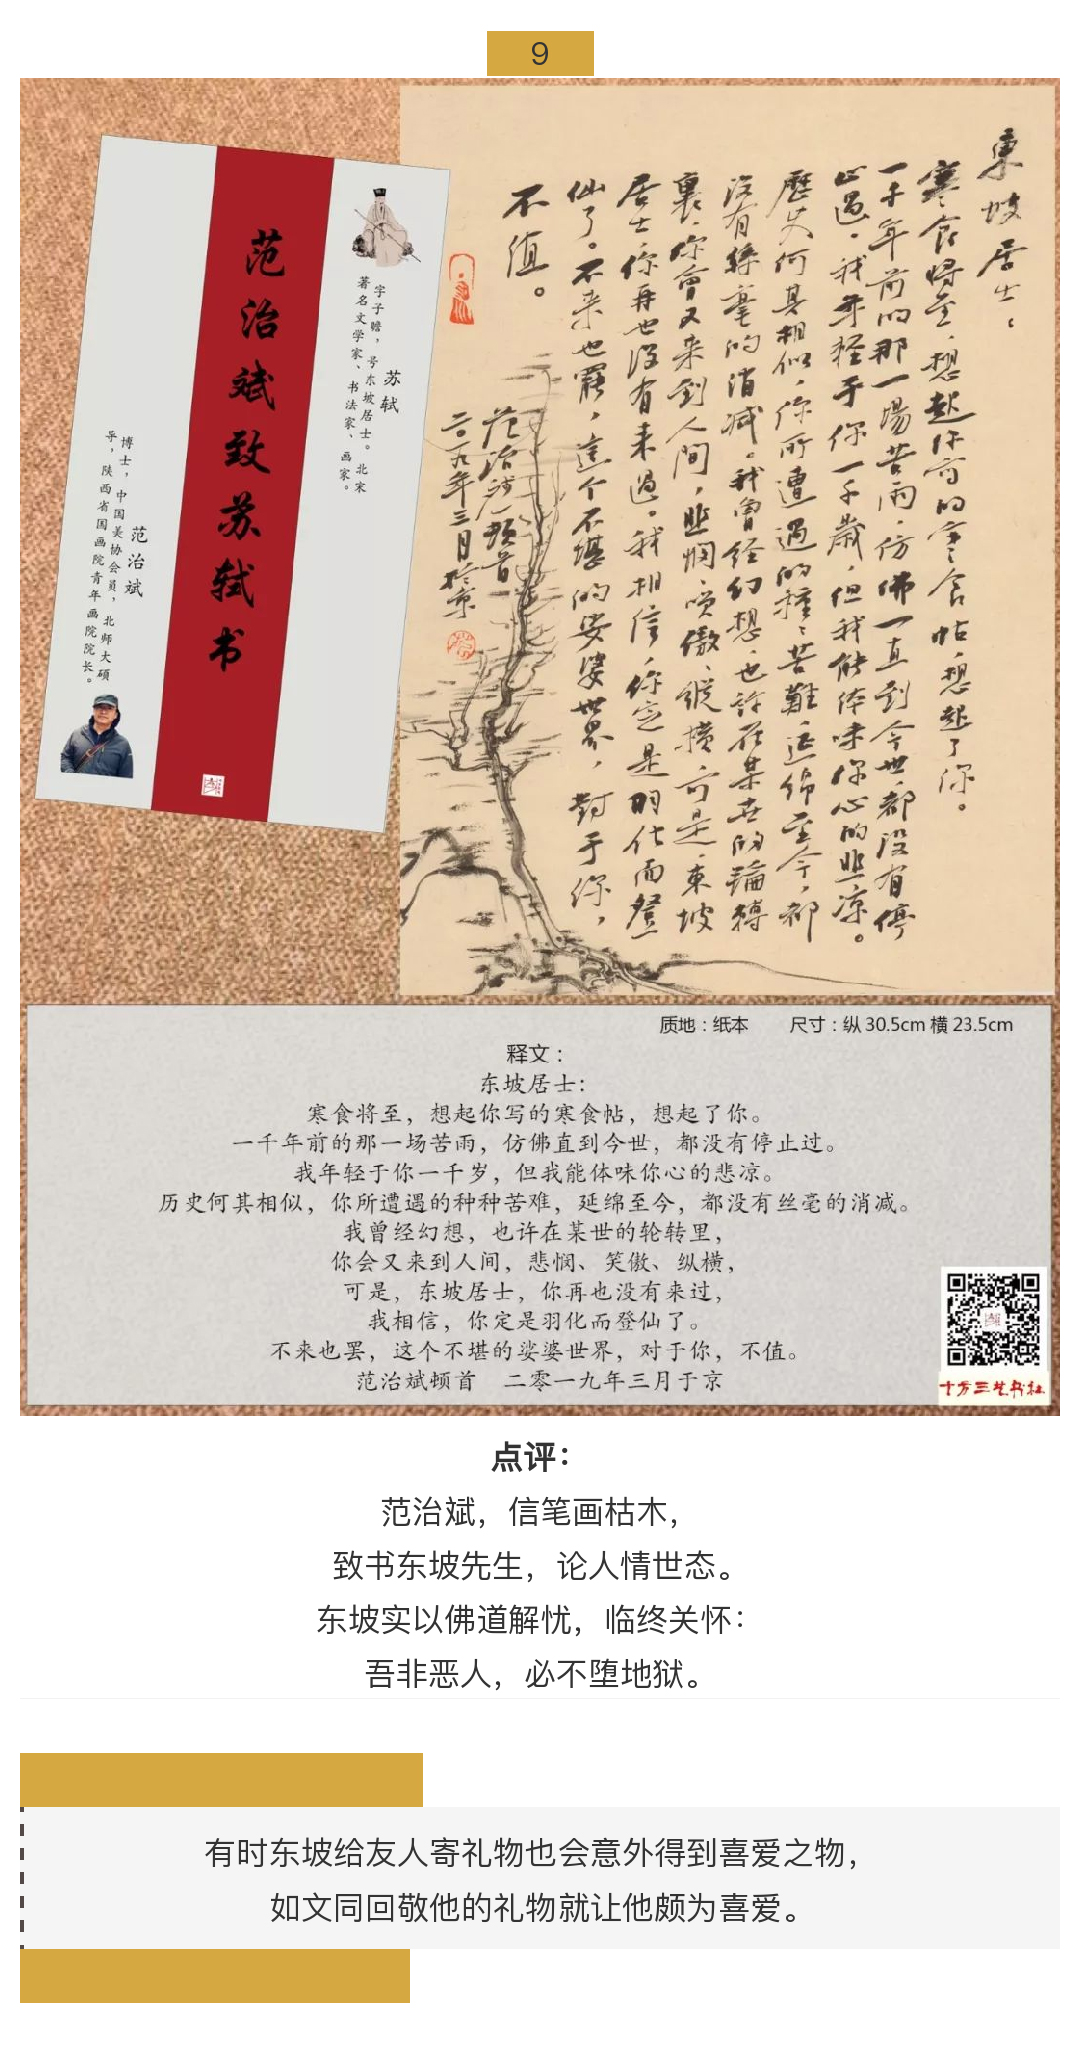 9
范治斌致苏轼书
苏轼
字子瞻，号东坡居士。北宋
著名文学家、书法家、画家。
范治斌
博士，中国美协会员，北师大硕
导，陕西省国画院青年画院院长。
東坡居士：
寒食将至，想起你写的寒食帖，想起了你。
一千年前的那一場苦雨，仿佛一直到今世，都没有停
止過。我年轻于你一千歲，但我能体味你心的悲凉。
歷史何其相似，你所遭遇的種種苦難，延绵至今，都
没有絲毫的消减。我曾经幻想，也許在某世的輪轉
裏，你會又来到人間，悲憫、笑傲、縱横，可是，東坡
居士，你再也没有来過。我相信，你定是羽化而登
仙了。不来也罷，這个不堪的娑婆世界，對于你，
不值。
范治斌顿首
二〇一九年三月於京
质地：纸本 尺寸：纵 30.5cm 横 23.5cm
释文：
东坡居士：
寒食将至，想起你写的寒食帖，想起了你。
一千年前的那一场苦雨，仿佛直到今世，都没有停止过。
我年轻于你一千岁，但我能体味你心的悲凉。
历史何其相似，你所遭遇的种种苦难，延绵至今，都没有丝毫的消减。
我曾经幻想，也许在某世的轮转里，
你会又来到人间，悲悯、笑傲、纵横，
可是，东坡居士，你再也没有来过，
我相信，你定是羽化而登仙了。
不来也罢，这个不堪的娑婆世界，对于你，不值。
范治斌顿首 二零一九年三月于京
十方三世书社
点评：
范治斌，信笔画枯木，
致书东坡先生，论人情世态。
东坡实以佛道解忧，临终关怀：
吾非恶人，必不堕地狱。
有时东坡给友人寄礼物也会意外得到喜爱之物，
如文同回敬他的礼物就让他颇为喜爱。